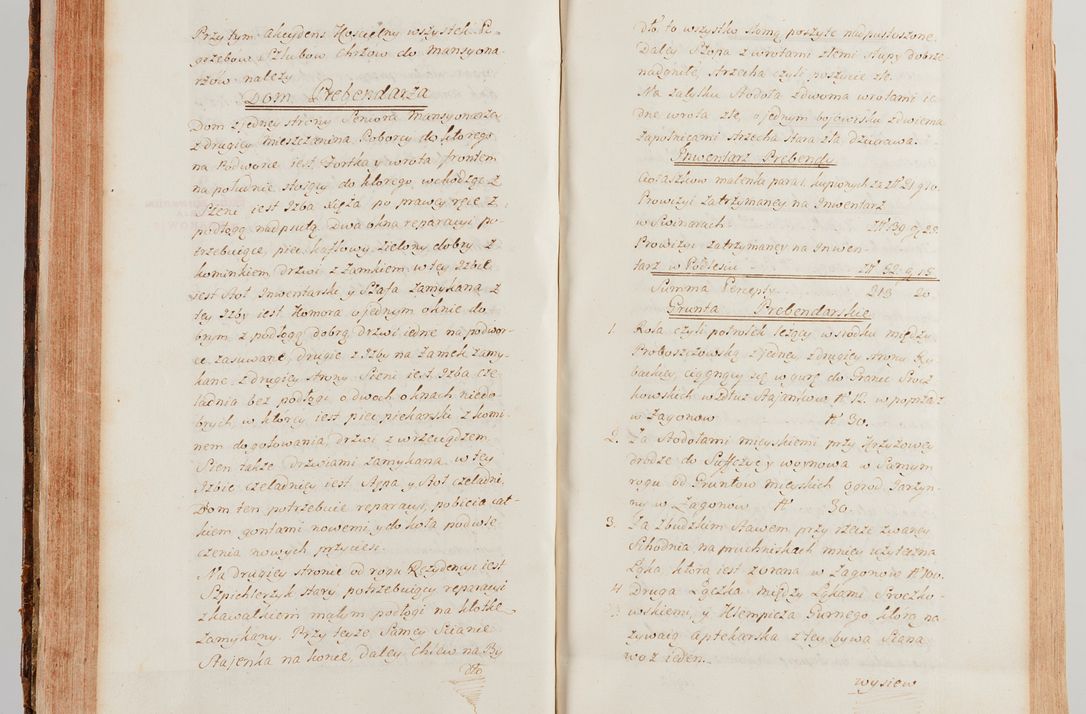 Przy tym Akcydens Kościelny wszystek Po-
grzebów, Szlubów Chrzów do Mansyona-
rzów należy
Dom Prebendarza
Dom z jedney strony Seniora Mansyonarza
z drugiey Mieszczanina Poborcy do którego
na Podworze iest Fortka y wrota frontem
na południe stoiący do którego wchodząc z
Sieni iest Izba Xięża po prawey ręce z
podłogą nadpsutą. Dwa okna reparacyi po-
trzebuiące, piec kaflowy zielony dobry z
kominkiem, drzwi z zamkiem, w tey Izbie
iest Stoł Inwentarski y Szafa zamykana z
tey Izby iest Komora o jednym oknie do-
brym, z podłogą dobrą, drzwi iedne na podwor-
ce zasuwane, drugie z Izby na zamek zamy-
kane, z drugiey strony Sieni iest Izba cze-
ladnia bez podłogi o dwoch oknach niedo-
brych, w ktorey iest piec piekarski z komi-
nem do gotowania, drzwi z wrzeciądzem
Sien także drzwiami zamykana. w tey
Izbie czeladney iest Szpa y Stoł czeladni,
Dom ten potrzebuie reparacyi, pobicia cał-
kiem gontami nowemi, y do koła podwle-
czenia nowych przycieśi.
Na drugiey stronie od rogu Rezydencyi iest
Szpichlerzyk stary, potrzebuiący reparacyi
z kawałkiem małym podłogi na kłotkę
zamykany. Przy teyże samey ścianie
Stajenka na konie, daley chlew na By
dło
dło to wszystko słomą poszyte nadpustoszone
Daley Szopa z wrotami złemi słupy dobrze
nadgniłe, strzecha czyli poszycie złe.
Na załyłku Stodoła z dwoma wrotami ie-
dne wrota złe, o jednym bojowisku z dwiema
zapolnicami strzecha stara zła dziurawa.
Inwentarz Prebendy
Ciołaszkow malenka para 1. kupionych za Zł 21 g 10.
Prowizyi zatrzymaney na Inwentarz
w Swinarach Zł 139 g 25.
Prowizyi zatrzymaney na Inwen-
tarz w Podlesiu Zł 52 g 15.
Summa Percepty 213 20.
Grunta Prebendarskie
1. Rola czyli połwiek leżący w srodku między
Proboszczowską z jedney, z drugiey strony Ry-
backiey, ciągnący się w gurę do Granic Srocz
kowskich wzdłuż Stajankow N 12. w poprzacz
w Zagonow N 30.
2. Za Stodołami mieyskiemi przy Krzyżowey
drodze do Suffczyc y Woynowa w samym
rogu od Gruntow mieyskich ogrod Jarzyn-
ny w Zagonow N 30.
3. Za Zbudzkim Stawem, przy rzece zwaney
Schodnia, na pruchniskach mniey użyteczna
Łąka, ktora iest zorana w Zagonow N 100.
4 Druga Łączka między Łąkami Sroczko-
wskiemi, y Klempicza Gurnego ktorą na-
zywaią Aptekarska z tey bywa Siana
woz ieden.
wysiew